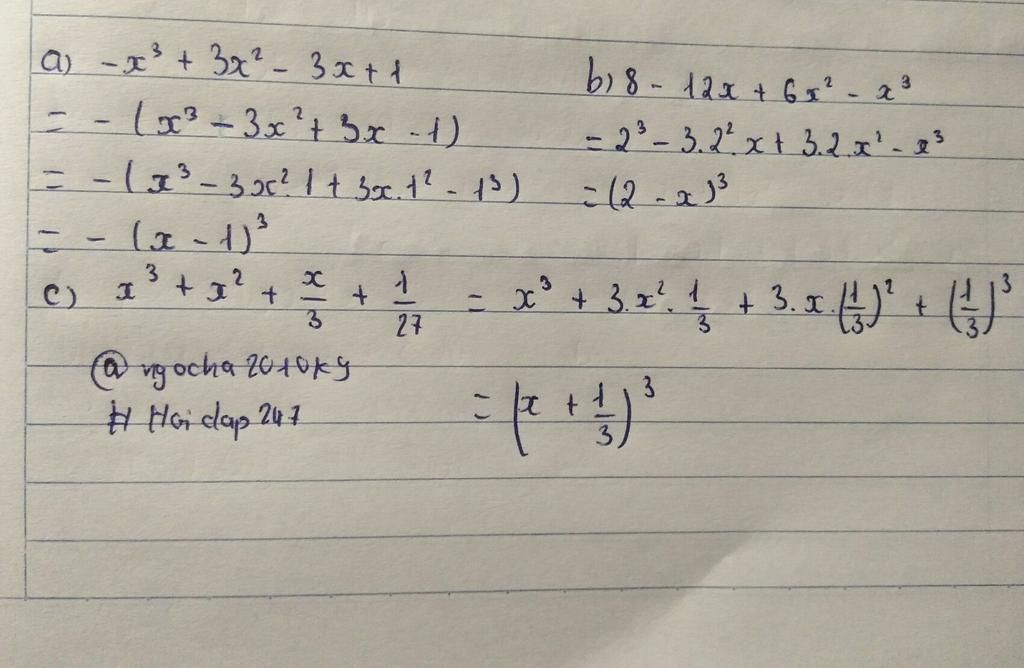 a) -x³ + 3x² - 3x + 1
= - (x³ - 3x² + 3x - 1)
= - (x³ - 3x².1 + 3x.1² - 1³)
= - (x - 1)³
b) 8 - 12x + 6x² - x³
= 2³ - 3.2².x + 3.2.x² - x³
= (2 - x)³
c) x³ + x² + x/3 + 1/27 = x³ + 3.x².1/3 + 3.x.(1/3)² + (1/3)³
= (x + 1/3)³
@ ngocha2010kg
# Hoidap247